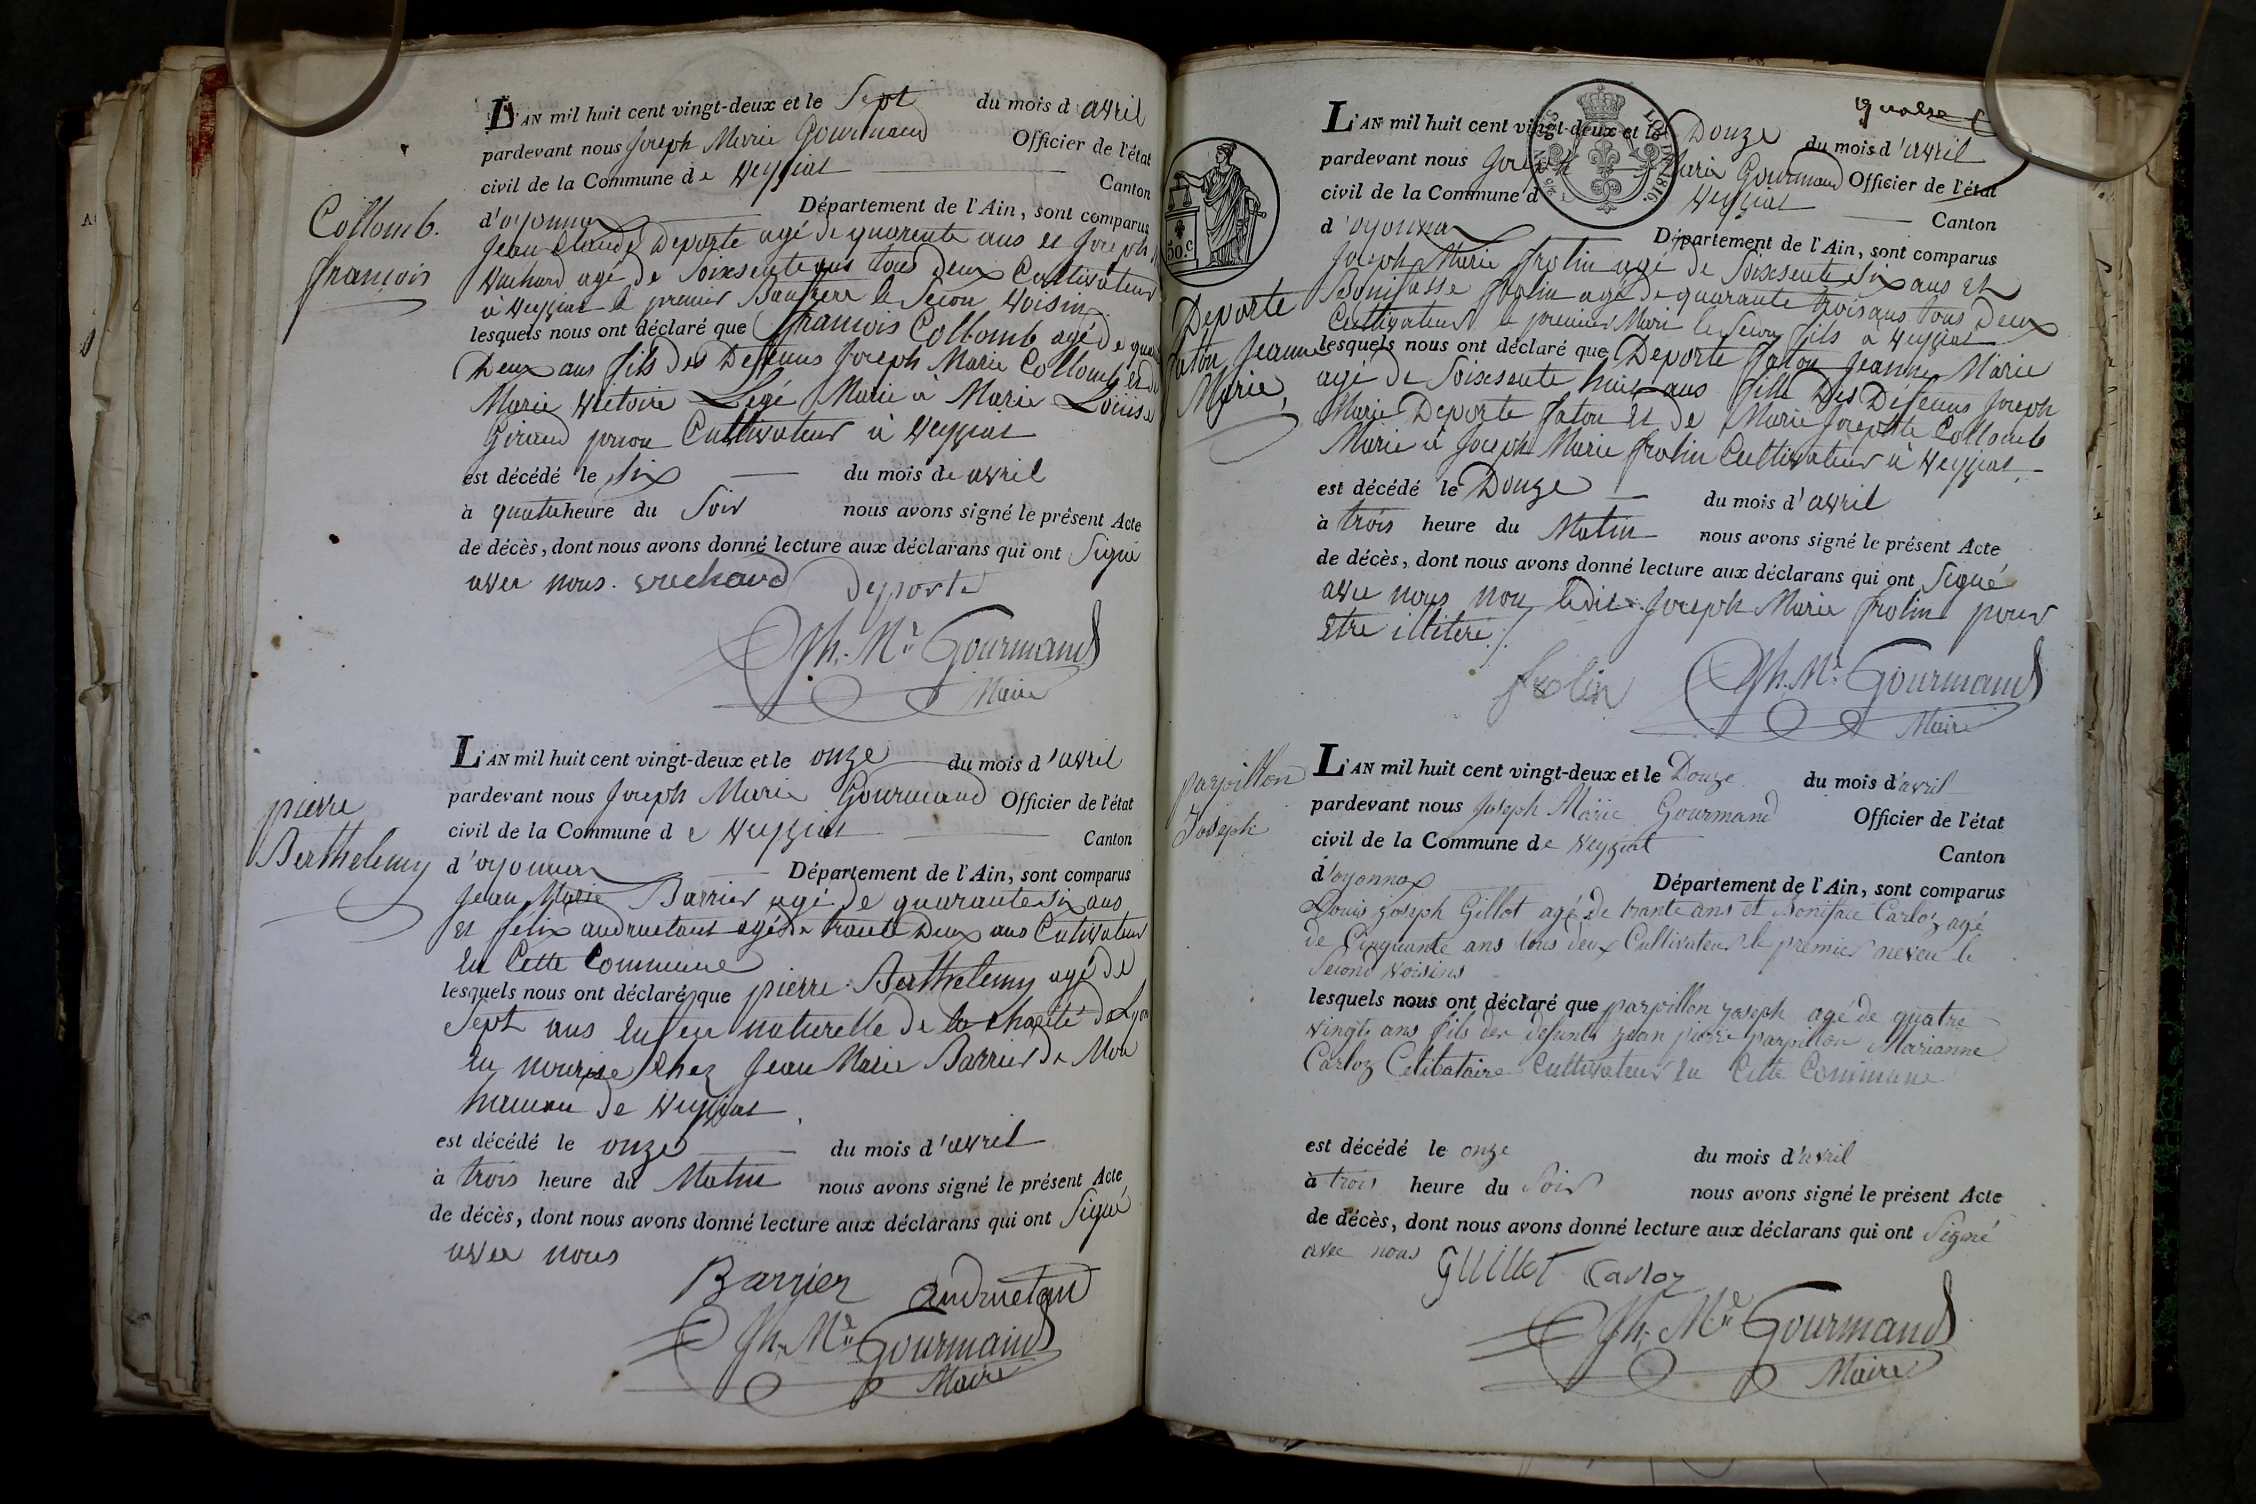 Collomb.
françois
L'AN mil huit cent vingt-deux et le Sept du mois d avril
pardevant nous Joseph Marie Gourmand Officier de l'état
civil de la Commune de Veyziat Canton
d'oyonnax Département de l'Ain, sont comparus
Jean Claude Deporte agé de quarente ans et Joseph
Vuchard agé de Soixsente ans tous deux Cultivateur
à Veyziat le premier Baufrere le Secon Voisin
lesquels nous ont déclaré que françois Collomb agé de
Deux ans fils des Defunts Joseph Marie Collomb et de
Marie Victoire Légé Marie à Marie Loüise
Giraud Cultivateur à Veyziat
est décédé le Six du mois de avril
à quatre heure du Soir nous avons signé le présent Acte
de décès, dont nous avons donné lecture aux déclarans qui ont Signé
avec nous. vuchard Deporte
Jh. Mie Gourmand
Maire
pierre
Berthelemy
L'AN mil huit cent vingt-deux et le onze du mois d'avril
pardevant nous Joseph Marie Gourmand Officier de l'état
civil de la Commune de Veyziat Canton
d'oyonnax Département de l'Ain, sont comparus
Jean Marie Barrier agé de quarante Six ans
et félix andruetant agé de trante Deux ans Cultivateur
en Cette Commune
lesquels nous ont déclaré que pierre Berthelemy agé de
Sept ans enfen naturelle de la charité de Lyon
en nourise Chez Jean Marie Barrier de Mon
hameau de Veyziat
est décédé le onze du mois d'avril
à trois heure du Matin nous avons signé le présent Acte
de décès, dont nous avons donné lecture aux déclarans qui ont Signé
avec nous
Barrier andruetan
Jh. Mie Gourmand
Maire
50.c
1816
Deporte
faton Jeanne
Marie,
L'AN mil huit cent vingt-deux et le Douze du mois d'avril
pardevant nous Joseph Marie Gourmand Officier de l'état
civil de la Commune d Veyziat Canton
d'oyonnax Département de l'Ain, sont comparus
Joseph Marie frolin agé de Soixsente Six ans et
Bonifasse frolin agé de quarante trois ans tous Deux
Cultivateur le premier Mari le Secon fils à Veyziat
lesquels nous ont déclaré que Deporte faton Jeanne Marie
agé de Soixsente huit ans fille Des Defunts Joseph
Marie Deporte faton et de Marie Josephte Collomb
Marie à Joseph Marie frolin Cultivateur à Veyziat
est décédé le Douze du mois d'avril
à trois heure du Matin nous avons signé le présent Acte
de décès, dont nous avons donné lecture aux déclarans qui ont Signé
avec nous non ledit Joseph Marie frolin pour
etre illiteré
frolin Jh. Mie Gourmand
Maire
parpillon
Joseph
L'AN mil huit cent vingt-deux et le Douze du mois d'avril
pardevant nous Joseph Marie Gourmand Officier de l'état
civil de la Commune de Veyziat Canton
d'oyonnax Département de l'Ain, sont comparus
Louis Joseph Gillot agé de trante ans et Boniface Carloz agé
de Cinquante ans tous deux Cultivateur le premier neveu le
Second voisins
lesquels nous ont déclaré que parpillon Joseph agé de quatre
vingts ans fils des defunts jean pierre parpillon Marianne
Carloz Celibataire Cultivateur en Cette Commune
est décédé le onze du mois d'avril
à trois heure du Soir nous avons signé le présent Acte
de décès, dont nous avons donné lecture aux déclarans qui ont Signé
avec nous GUILLOT Carloz
Jh. Mie Gourmand
Maire